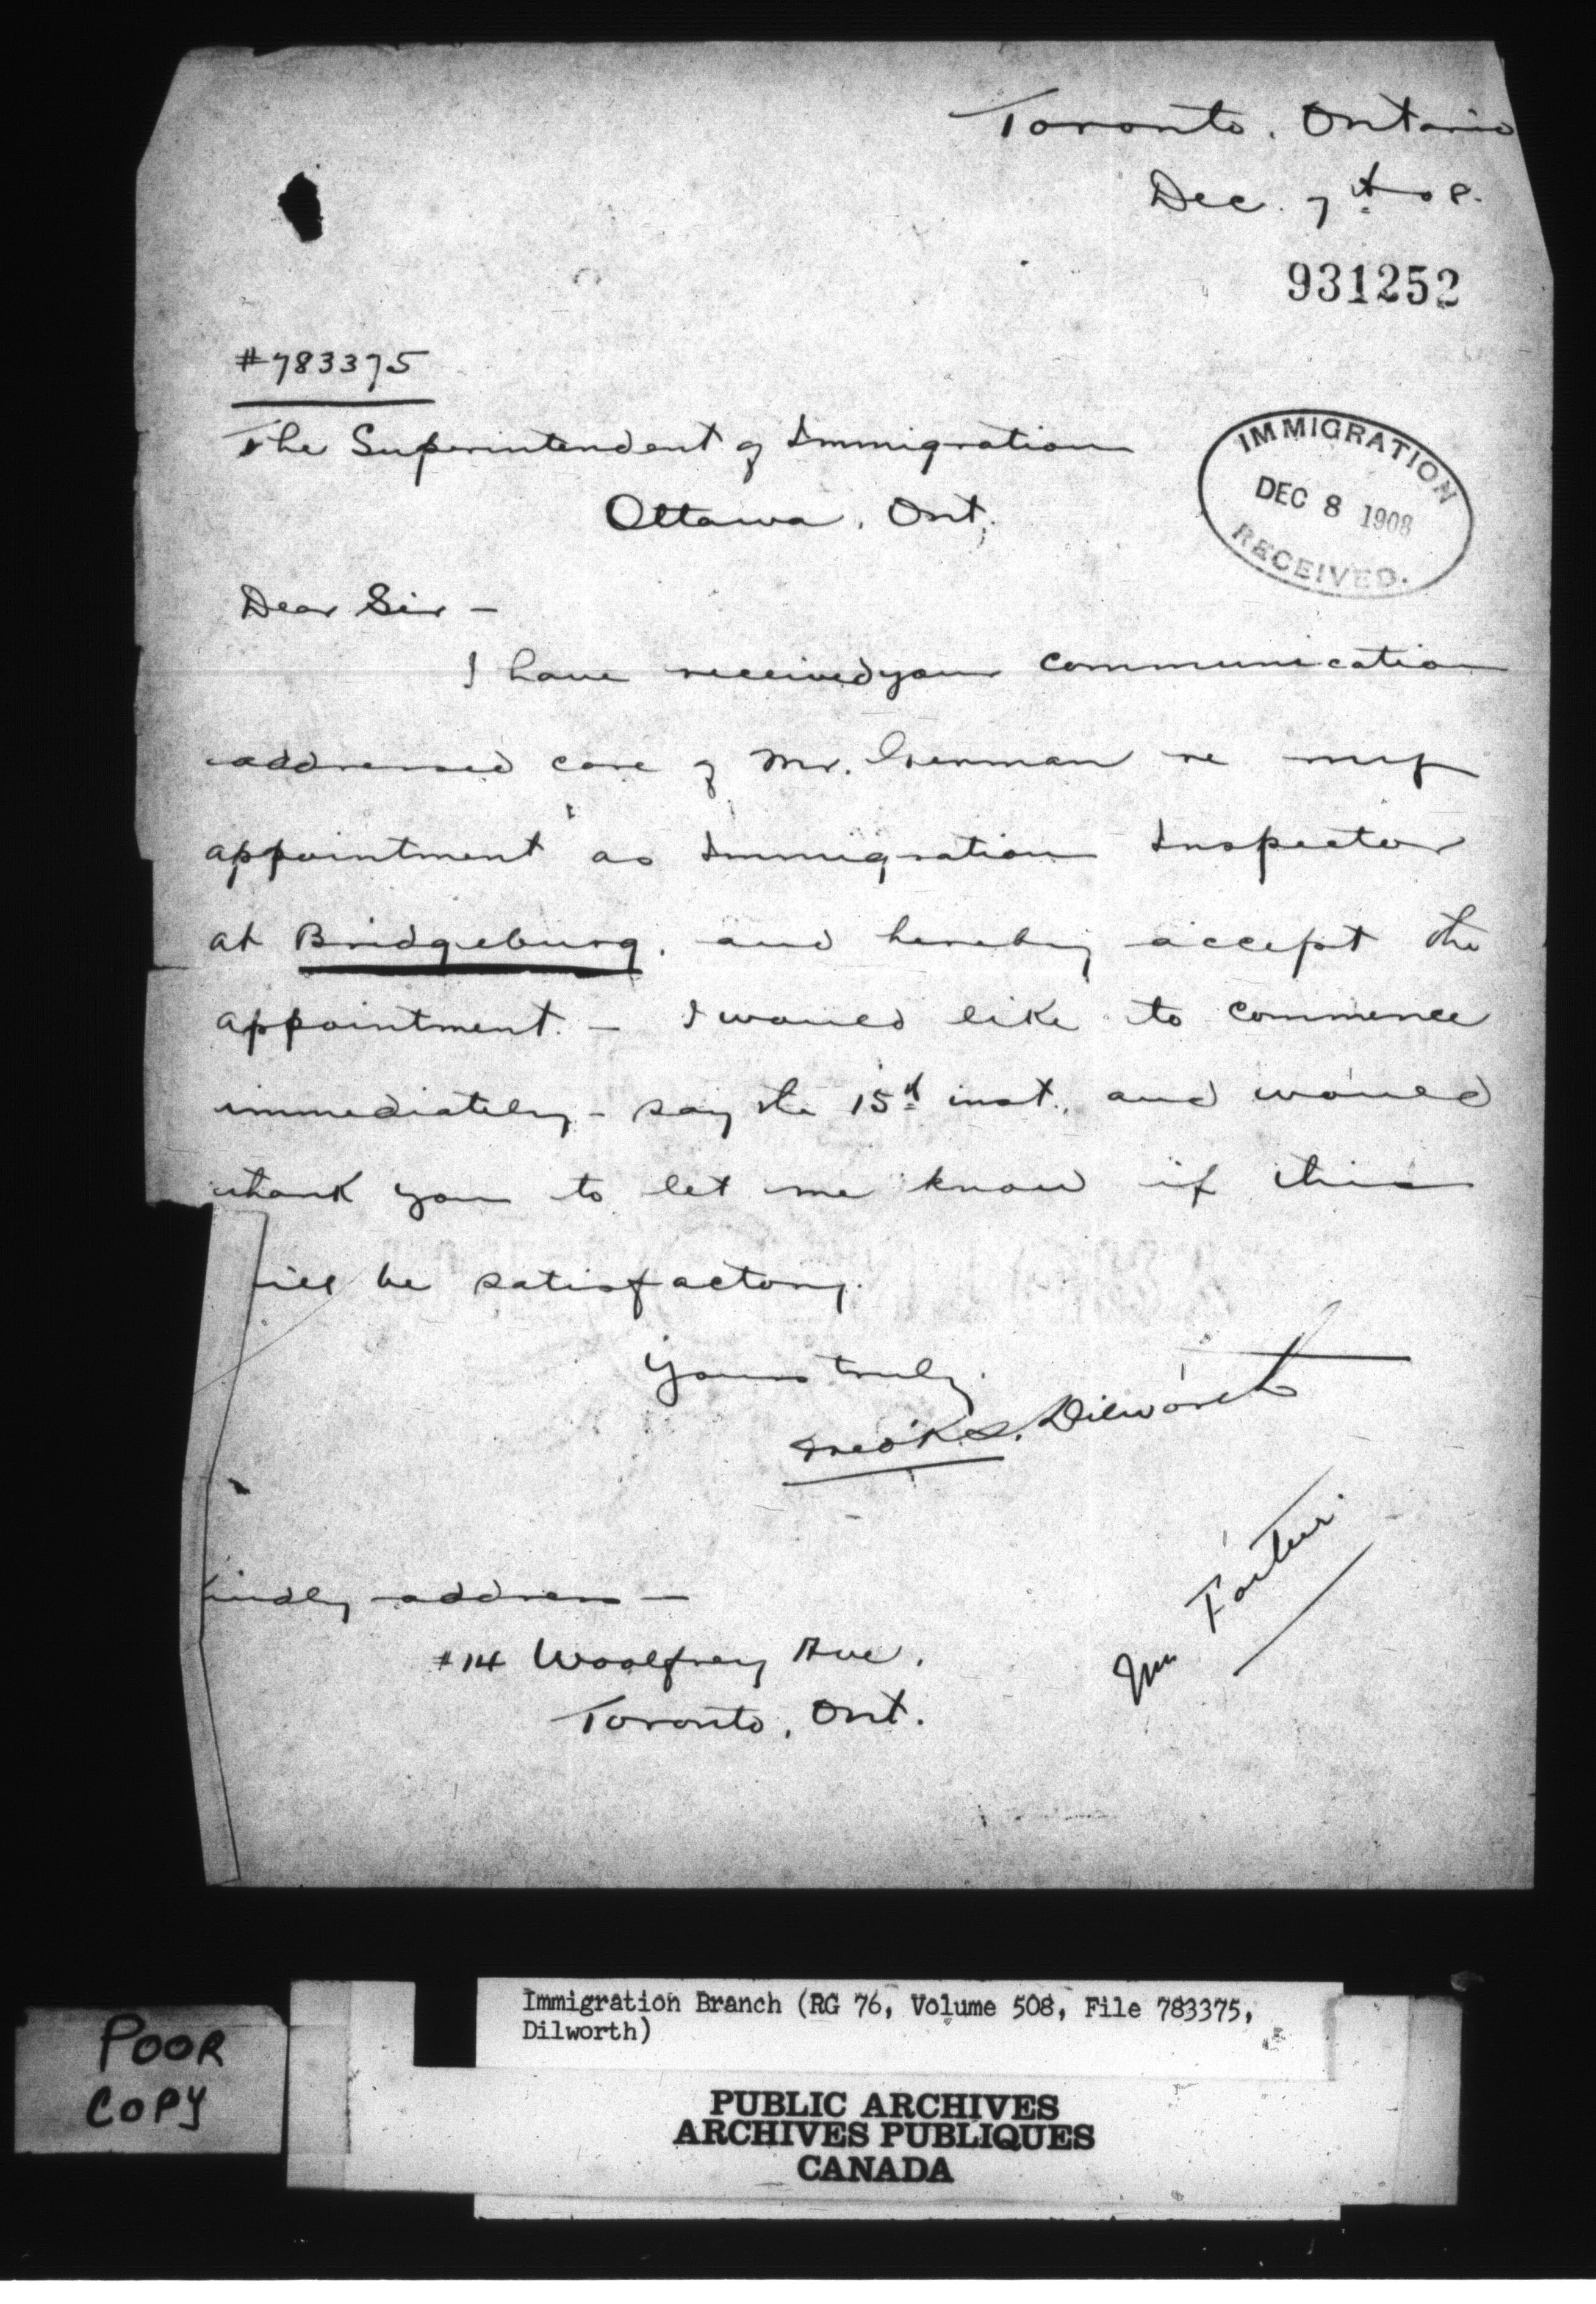 Toronto, Ontario
Dec. 7th 08.
931252
#783375
The Superintendent of Immigration
Ottawa, Ont.
IMMIGRATION
DEC 8 1908
RECEIVED.
Dear Sir –
I have received your communication
addressed care of Mr. German re my
appointment as Immigration Inspector
at Bridgeburg, and hereby accept the
appointment. – I would like to commence
immediately – say the 15th inst., and would
thank you to let me know if this
will be satisfactory.
Yours truly,
Dilworth
Kindly address –
#14 Woolfrey Ave.
Toronto, Ont.
Mr
Immigration Branch (RG 76, Volume 508, File 783375,
Dilworth)
POOR
COPY
PUBLIC ARCHIVES
ARCHIVES PUBLIQUES
CANADA